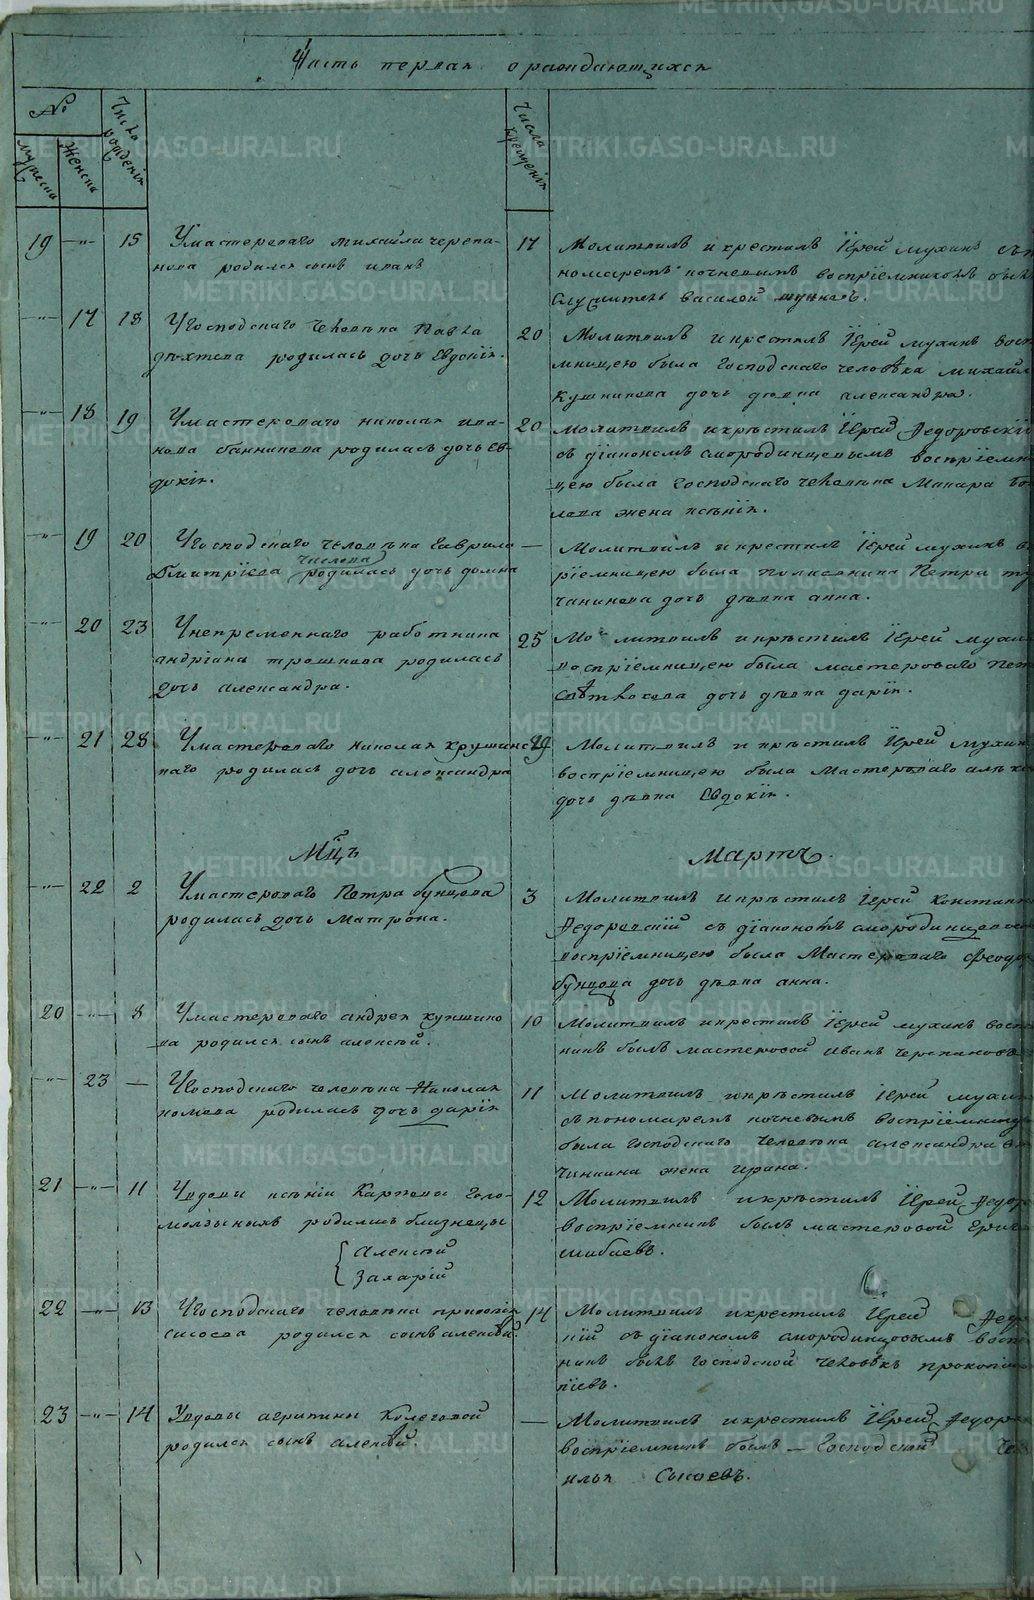 Часть первая о раждающихся
№
Мужеска
Женска
Числа рожденія
Числа крещенія
19 —„— 15 Умастероваго михайла черепа-
нова родился сынъ иванъ
17 Молитвилъ икрестилъ Їерей мухинъ съпо
номаремъ почневымъ воспрїемникомъ былъ
служитель василей
—„— 17 18 Угосподскаго человѣка Павла
дѣхтева родилась дочь Евдокїя.
20 Молитвилъ икрестилъ Їерей мухинъ восп
мницею была господскаго человѣка михайл
кушникова дочь дѣвка александра.
—„— 18 19 Умастероваго николая ива-
нова банникова родилась дочь ев-
докія.
20 Молитвилъ икрѣстилъ Їерей Ѳедоровскій
съ дїакономъ смородинцевымъ воспрїемни
цею была господскаго человѣка Макара
лова жена ксѣнїя.
—„— 19 20 Угосподскаго человѣка Гаврила
Дмитрїева числова родилась дочь домна
— Молитвилъ икрестилъ Їерей мухинъ в
рїемницею была полисовника Петра
чанинова дочь дѣвка анна.
—„— 20 23 Унепременнаго работника
андрїана трошкова родилась
дочь александра.
25 Молитвилъ икрѣстилъ Їерей мухи
воспрїемницею была мастероваго пет
свѣтлосева дочь дѣвка дарїя.
—„— 21 28 Умастероваго николая крушинс
каго родилась дочь александра
29 Молитвилъ икрѣстилъ Їерей мухин
воспрїемницею была Мастероваго алѣк
дочь дѣвка Евдокїя.
Мцъ Мартъ.
—„— 22 2 Умастероваго Петра бунцова
родилась дочь Матрона.
3 Молитвилъ икрѣстилъ Їерей констан
Ѳедоровскій съ дїакономъ смородинцевы
воспрїемницею была Мастероваго Феодо
бунцова дочь дѣвка анна.
20 —„— 8 Умастероваго андрея кункино
ва родился сынъ алексѣй.
10 Молитвилъ икрестилъ Їерей мухинъ восп
никъ былъ мастеровой иванъ черепановъ
—„— 23 — Угосподскаго человѣка Николая
комева родилась дочь дарїя
11 Молитвилъ икрѣстилъ Їерей мухи
съпономаремъ почневымъ воспрїемниц
была господскаго человѣка александра
чинкина жена ирина.
21 —„— 11 Увдовы ксѣнїи Карповы голо-
молзиныхъ родились близнецы
алексѣй
захарїй
12 Молитвилъ икрѣстилъ Їерей Ѳедор
воспрїемникъ былъ мастеровой
шибаевъ.
22 —„— 13 Угосподскаго человѣка прокопїя
сысоева родился сынъ алексѣй.
14 Молитвилъ икрестилъ Їерей Ѳедор
кїй съ дїакономъ смородинцовымъ восп
никъ былъ господской человѣкъ прокопїй
пїевъ.
23 —„— 14 Увдовы агрипины Кулеговой
родился сынъ алексѣй.
— Молитвилъ икрестилъ Їерей Ѳедор
воспрїемникъ былъ — Господской че
илья Сысоевъ.
METRIKI.GASO-URAL.RU